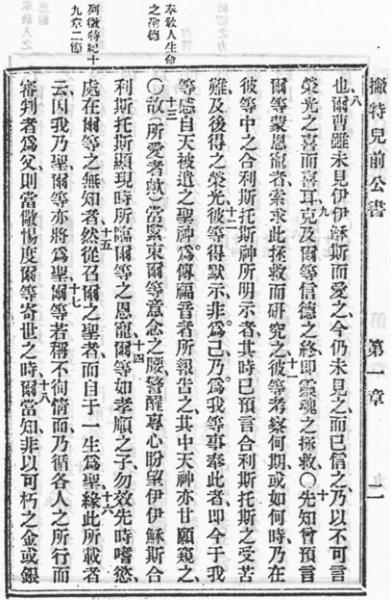 撇特兒前公書 第一章
八
也爾曹雖未見伊伊穌斯而愛之、今仍未見之、而已信之、乃以不可言
九 十
榮光之喜而喜耳克及爾等信德之終、即靈魂之拯救○先知曾預言
十一
爾等蒙恩寵者、索求此拯救而研究之、彼等考察何期、或如何時、乃在
彼等中之合利斯托斯神所明示者、其時已預言合利斯托斯之受苦
十二
難及後得之榮光、彼等得默示、非爲己、乃爲我等事奉此者、即今于我
等處自天被遣之聖神、爲傳福音者所報告之、其中天神亦甘願窺之
奉教人生命
之聖德
十三
○故(所愛者歟)當緊束爾等意念之腰、警醒專心盼望伊伊穌斯合
十四
利斯托斯顯現時所臨爾等之恩寵、爾等如孝順之子、勿效先時嗜慾、
十五 十六
處在爾等之無知者、然從召爾之聖者、而自于一生爲聖、緣此所載者
列微特紀十
九章二節
十七
云、因我乃聖、爾等亦將爲聖、爾等若稱不徇情而乃循各人之所行而
十八
審判者爲父、則當儆惕度爾等寄世之時、爾當知非以可朽之金或銀